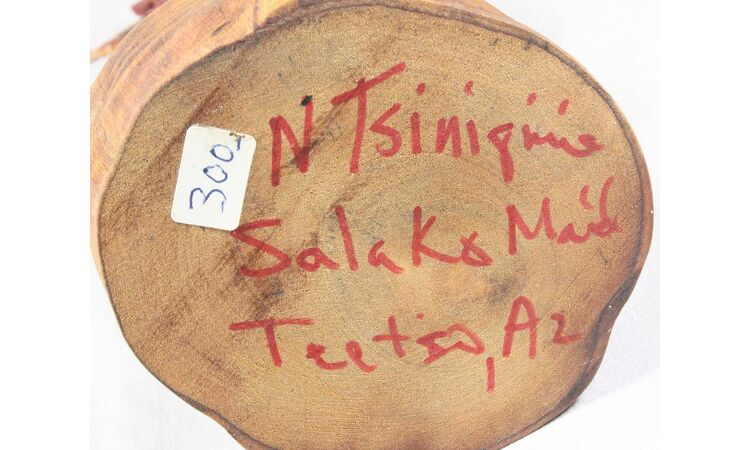 300-
N Tsinigine
Salako Maid
Teetso, Az